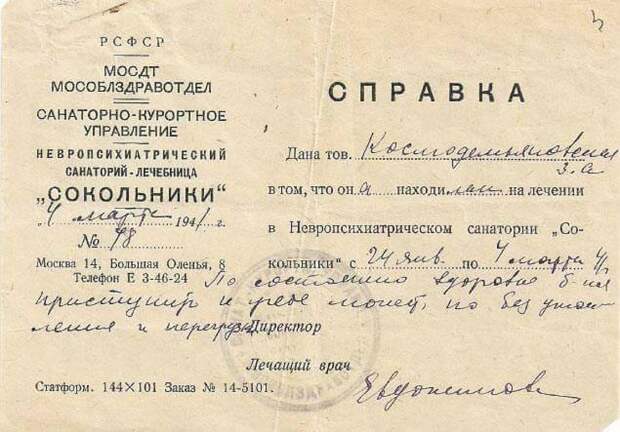 РСФСР
МОСДТ
МОСОБЛЗДРАВОТДЕЛ
САНАТОРНО-КУРОРТНОЕ
УПРАВЛЕНИЕ
НЕВРОПСИХИАТРИЧЕСКИЙ
САНАТОРИЙ-ЛЕЧЕБНИЦА
„СОКОЛЬНИКИ“
„4 марта 1941 г.
№ 78
Москва 14, Большая Оленья, 8
Телефон Е 3-46-24
СПРАВКА
Дана тов. Космодемьяновская
З.А
в том, что она находилась на лечении
в Невропсихиатрическом санатории „Со-
кольники“ с 24 янв. по 4 марта 41
По состоянию здоровья б-ная
приступить к учебе может, но без утом
ления и перегрузки
Директор
Лечащий врач
Евдокимов
Статформ. 144×101 Заказ № 14-5101.